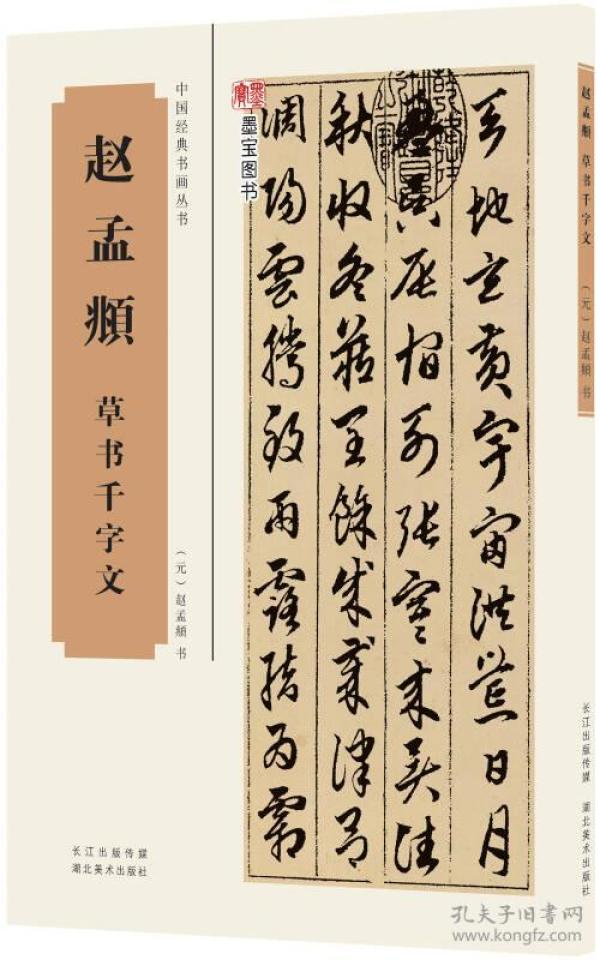 赵孟頫
草书千字文
中国经典书画丛书
（元）赵孟頫 书
长江出版传媒
湖北美术出版社
墨寶
墨宝图书
天地玄黄宇宙洪荒日月
盈昃辰宿列張寒来暑往
秋收冬藏閏餘成歲律吕
調陽雲騰致雨露結為霜
赵孟頫 草书千字文 （元）赵孟頫 书
长江出版传媒 湖北美术出版社
孔夫子旧书网
www.kongfz.com